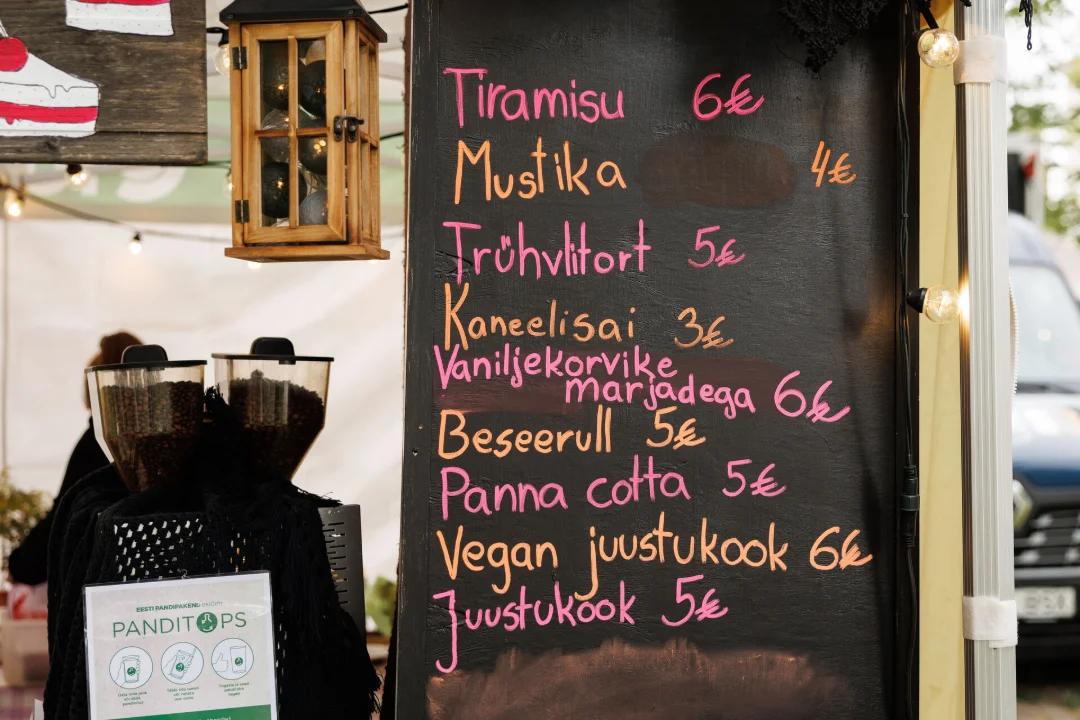 Tiramisu 6€
Mustika 4€
Trühvlitort 5€
Kaneelisai 3€
Vaniljekorvike
marjadega 6€
Beseerull 5€
Panna cotta 5€
Vegan juustukook 6€
Juustukook 5€
EESTI PANDIPAKEND
PANDITOPS